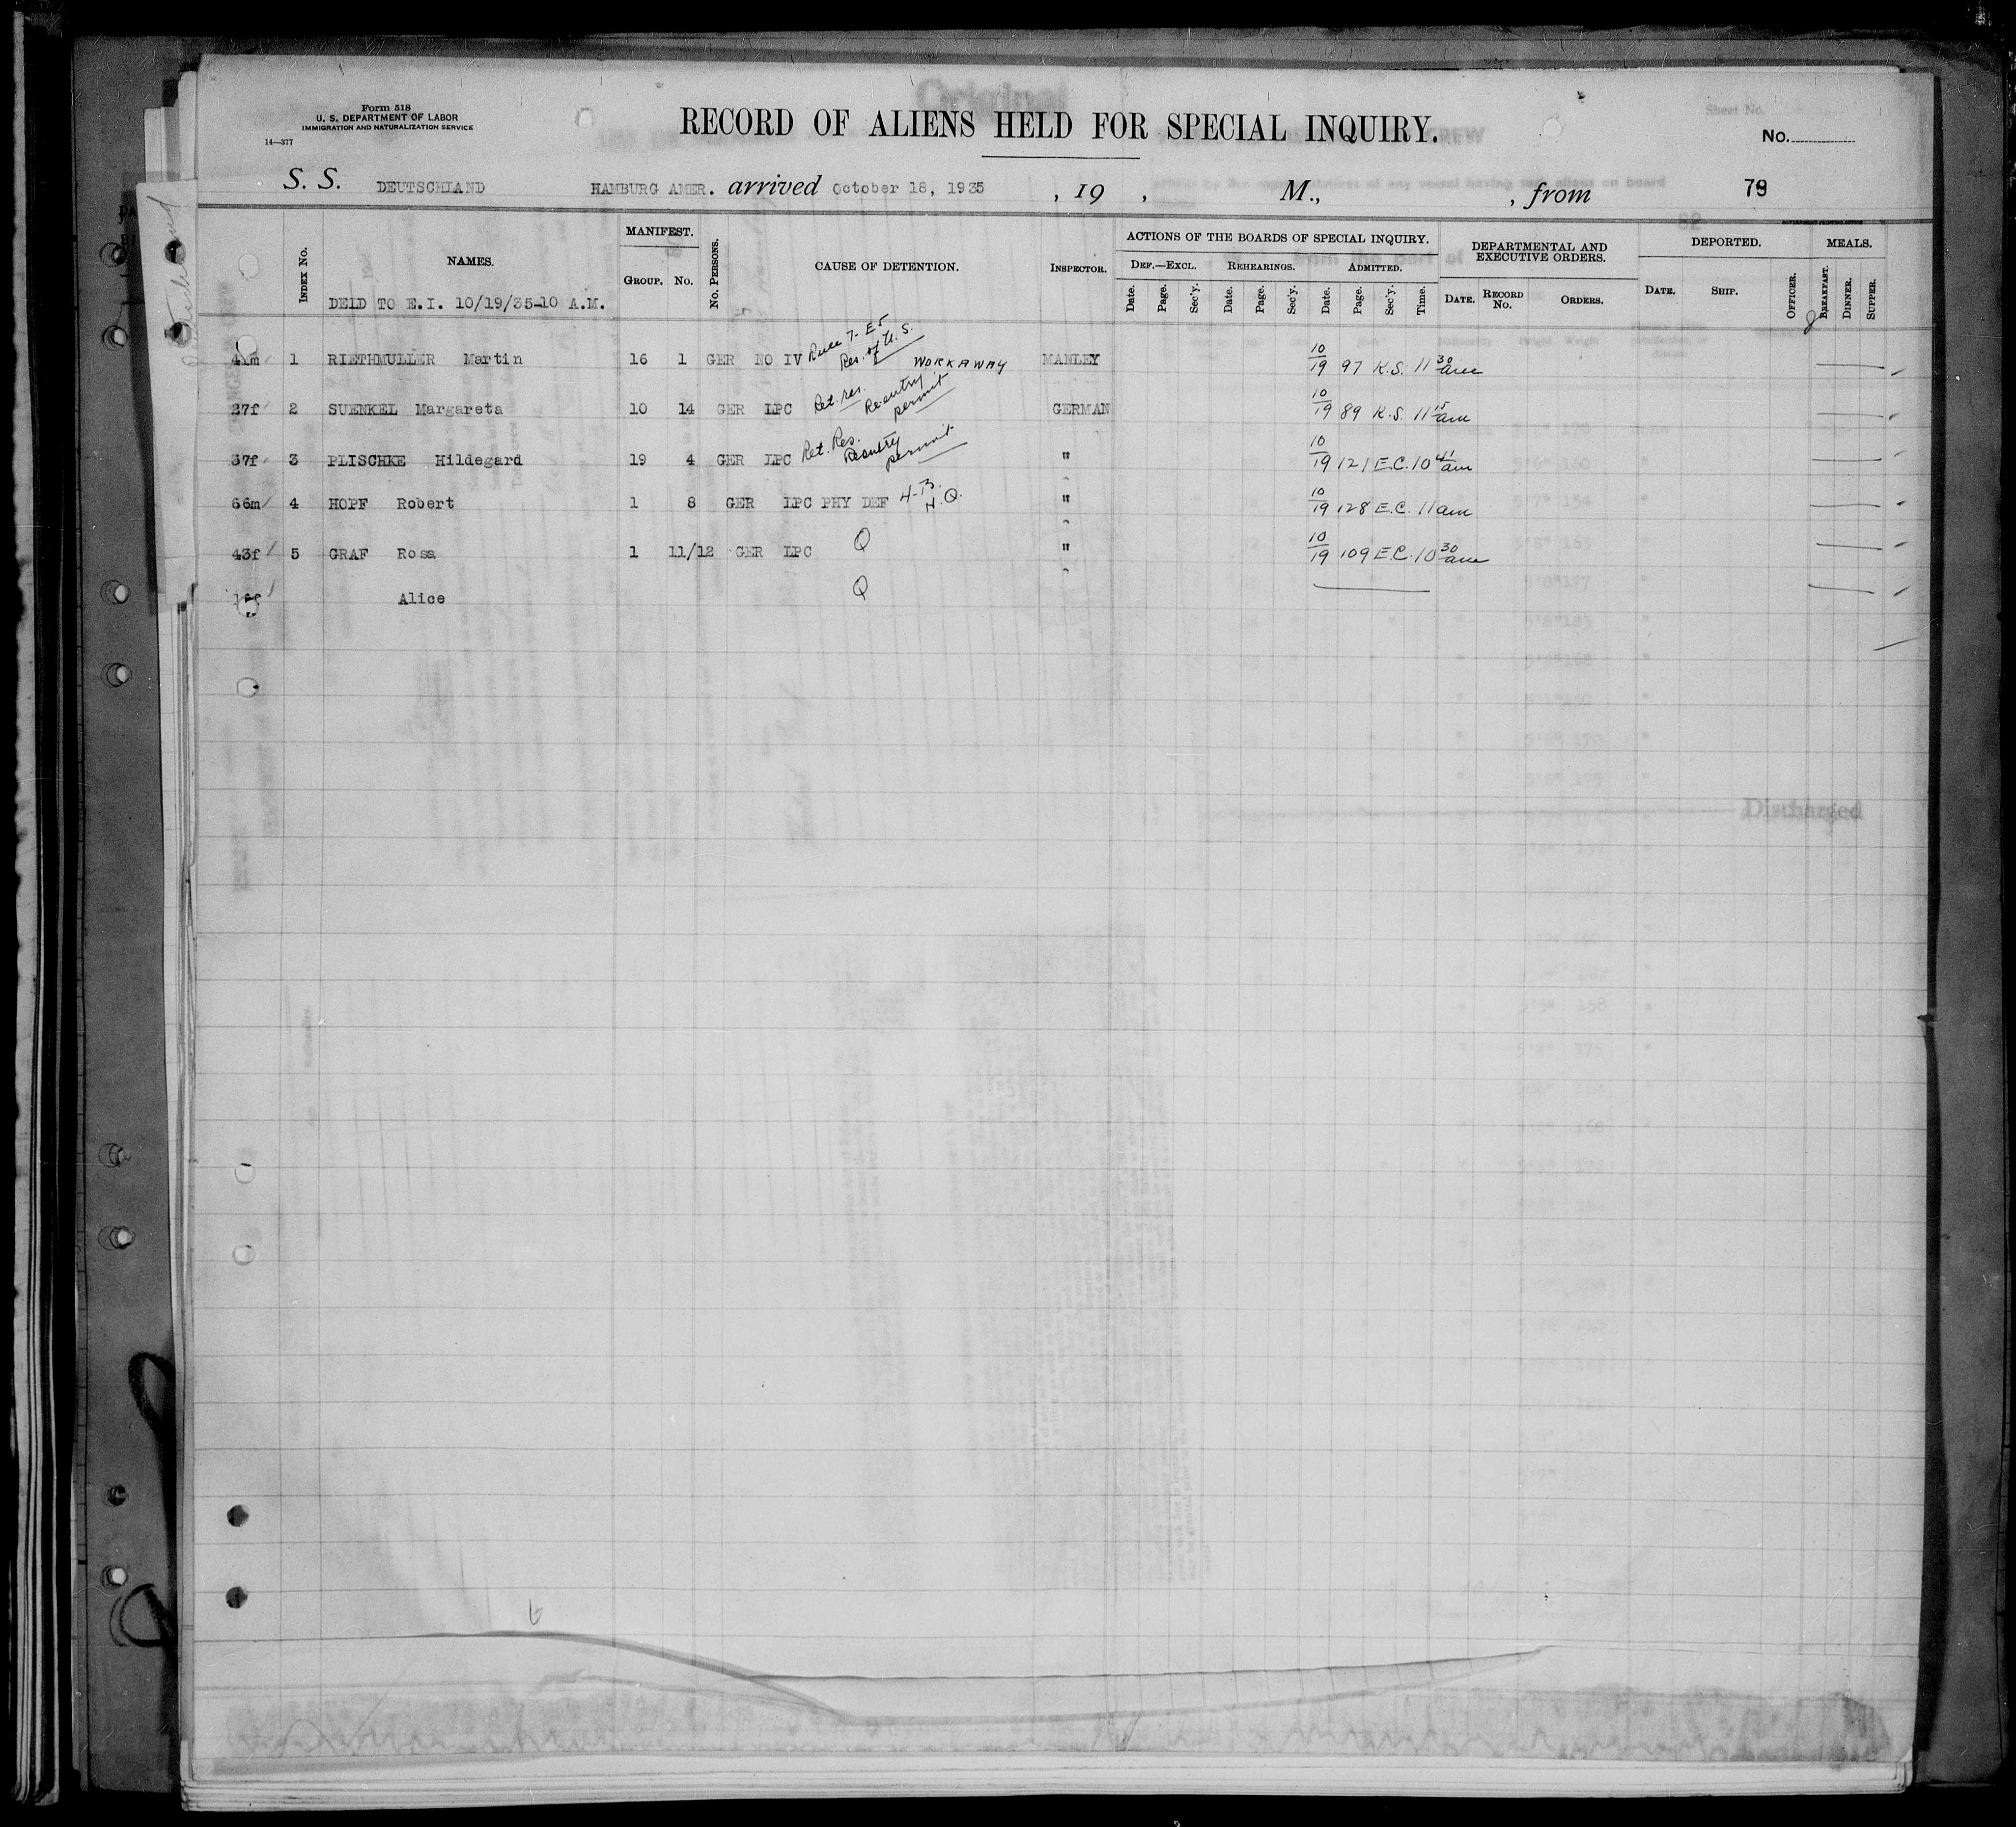 Form 518
U. S. DEPARTMENT OF LABOR
IMMIGRATION AND NATURALIZATION SERVICE
14—377
RECORD OF ALIENS HELD FOR SPECIAL INQUIRY.
No.
S. S. DEUTSCHLAND HAMBURG AMER. arrived October 18, 1935 , 19 , M., , from
79
INDEX No. NAMES. MANIFEST. GROUP. No. No. PERSONS. CAUSE OF DETENTION. INSPECTOR. ACTIONS OF THE BOARDS OF SPECIAL INQUIRY. DEF.—EXCL. Date. Page. Sec'y. REHEARINGS. Date. Page. Sec'y. ADMITTED. Date. Page. Sec'y. Time. DEPARTMENTAL AND EXECUTIVE ORDERS. DATE. RECORD No. ORDERS. DEPORTED. DATE. SHIP. OFFICER. MEALS. BREAKFAST. DINNER. SUPPER.
DELD TO E.I. 10/19/35-10 A.M.
41m 1 RIETHMULLER Martin 16 1 GER NO IV Rule 7- Res. of U.S. WORKAWAY MANLEY 10/19 97 K.S. 11 30 am
27f 2 SUENKEL Margareta 10 14 GER LPC Ret. res. Reentry permit GERMAN 10/19 89 K.S. 11 15 am
37f 3 PLISCHKE Hildegard 19 4 GER LPC Ret. Res. Reentry permit " 10/19 121 E.C. 10 41 am
66m 4 HOPF Robert 1 8 GER LPC PHY DEF N.Q. " 10/19 128 E.C. 11 am
43f 5 GRAF Rosa 1 11/12 GER LPC Q " 10/19 109 E.C. 10 30 am
Alice Q
Discharged